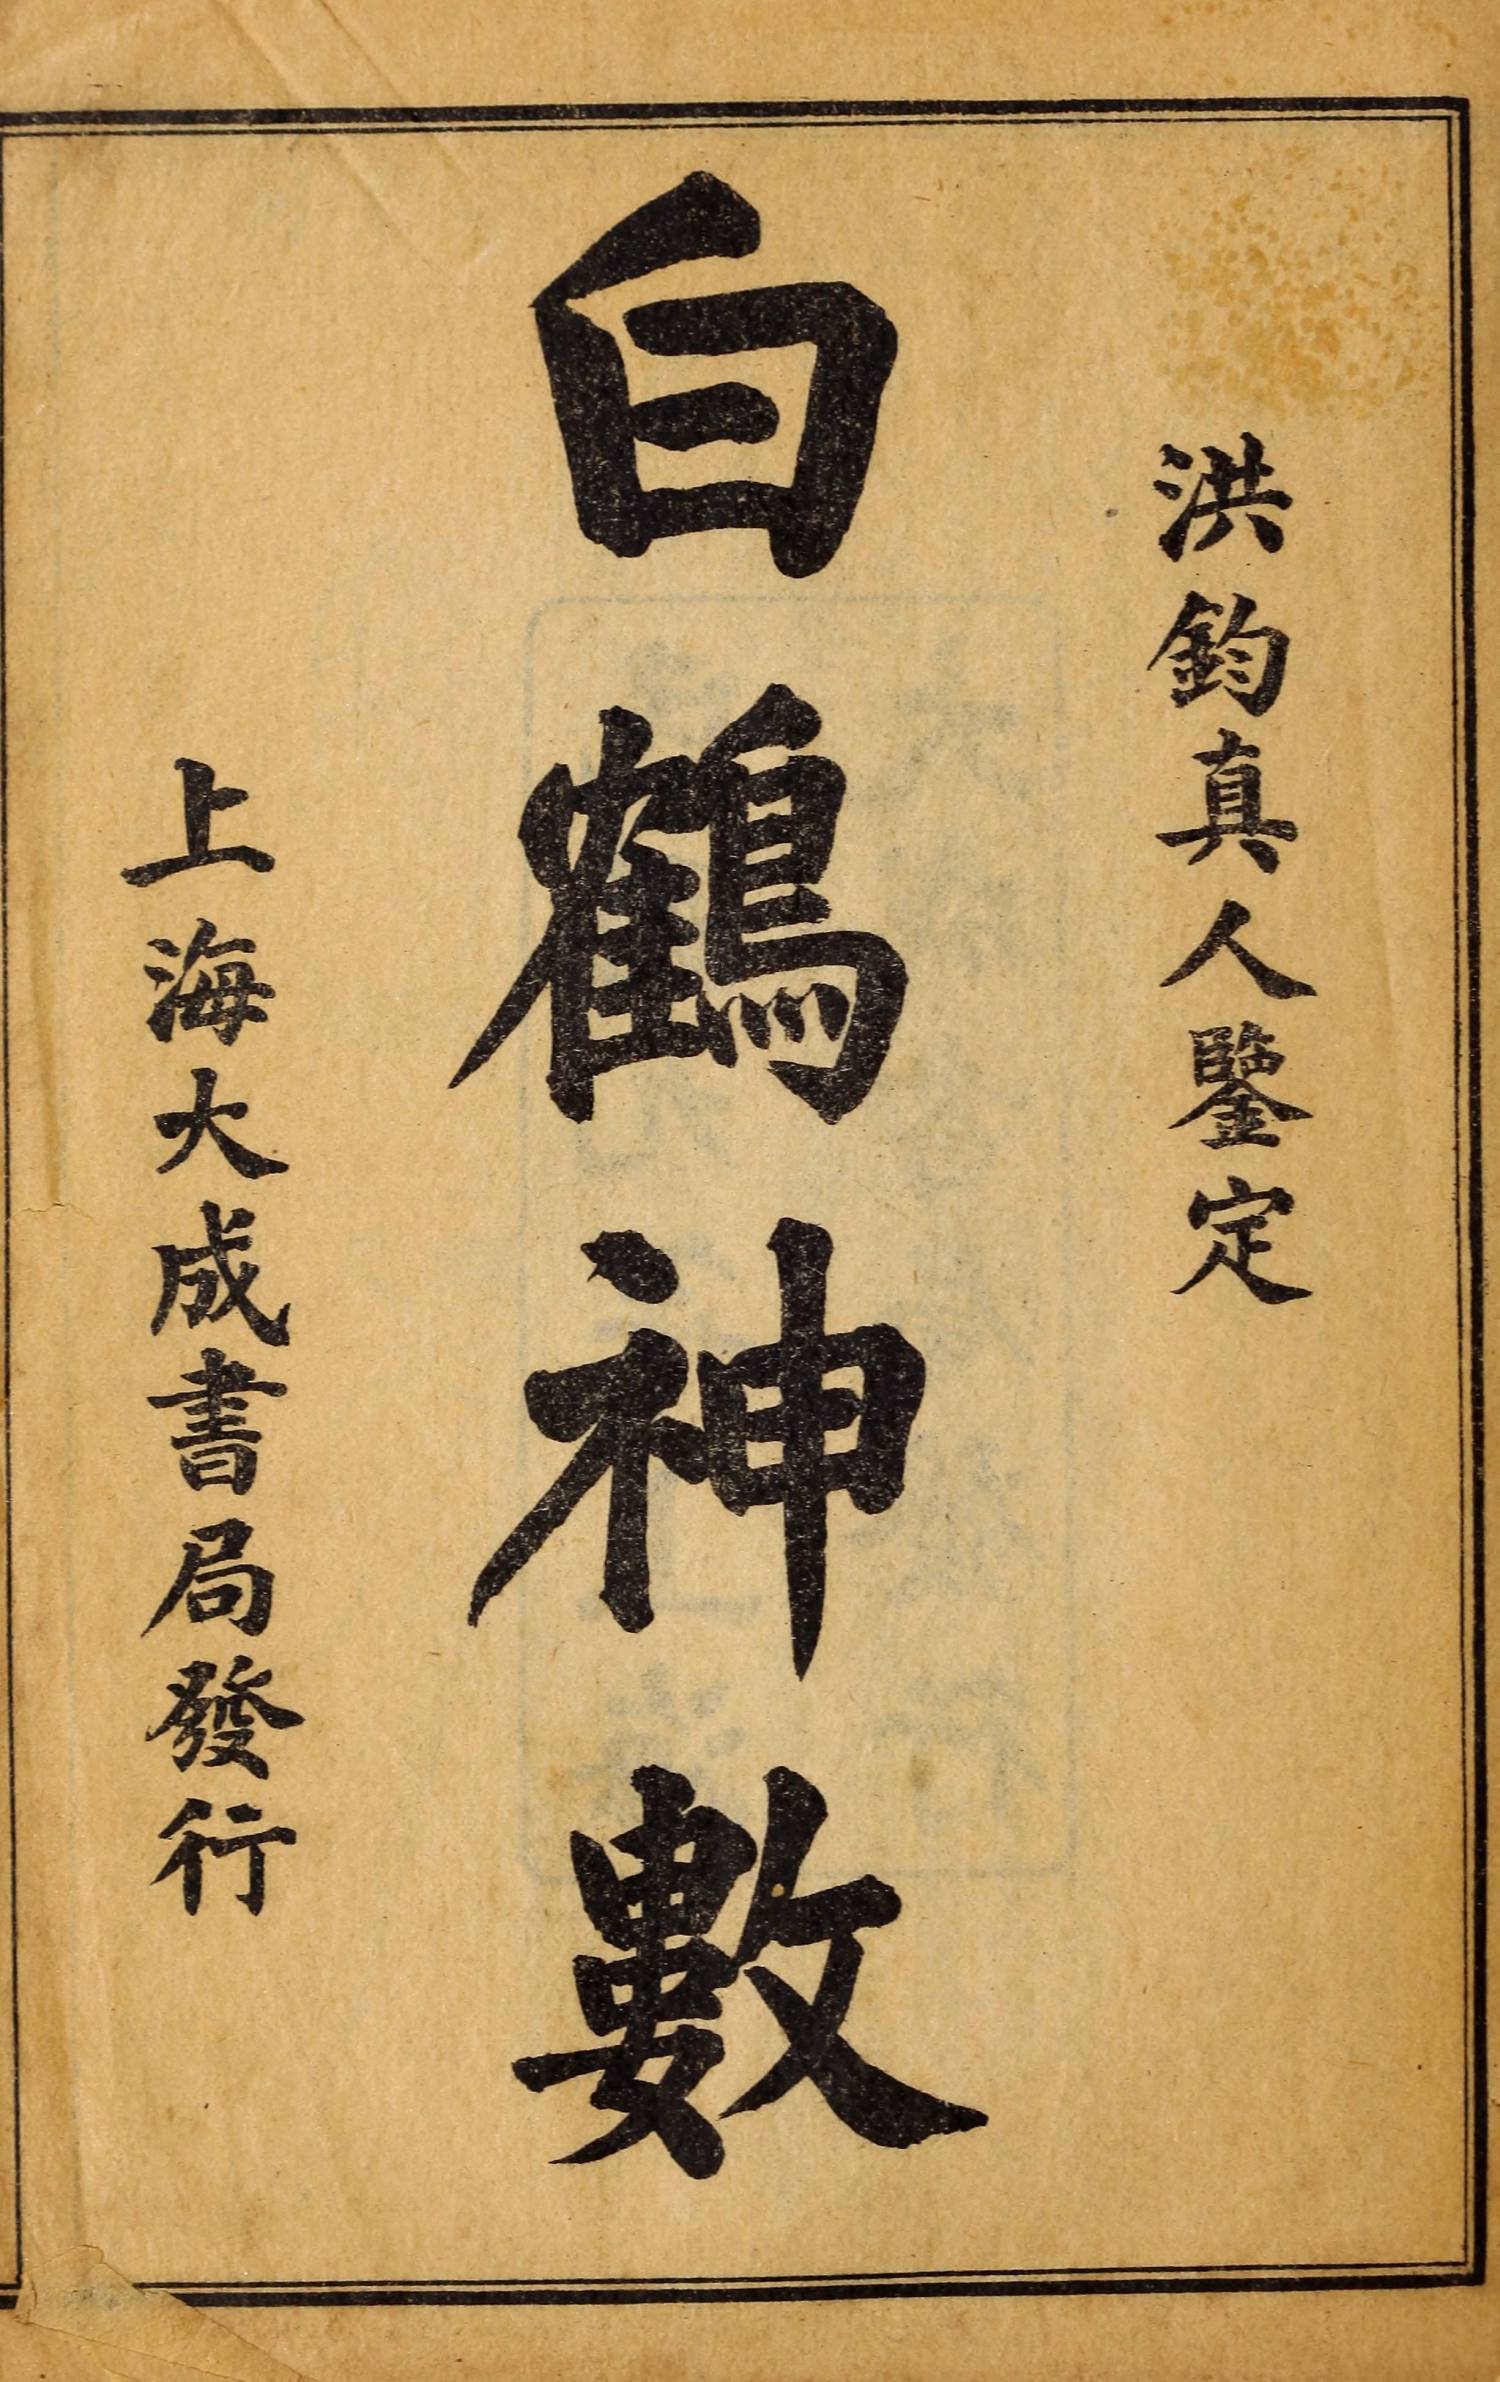 洪鈞真人鑒定
白鶴神數
上海大成書局發行